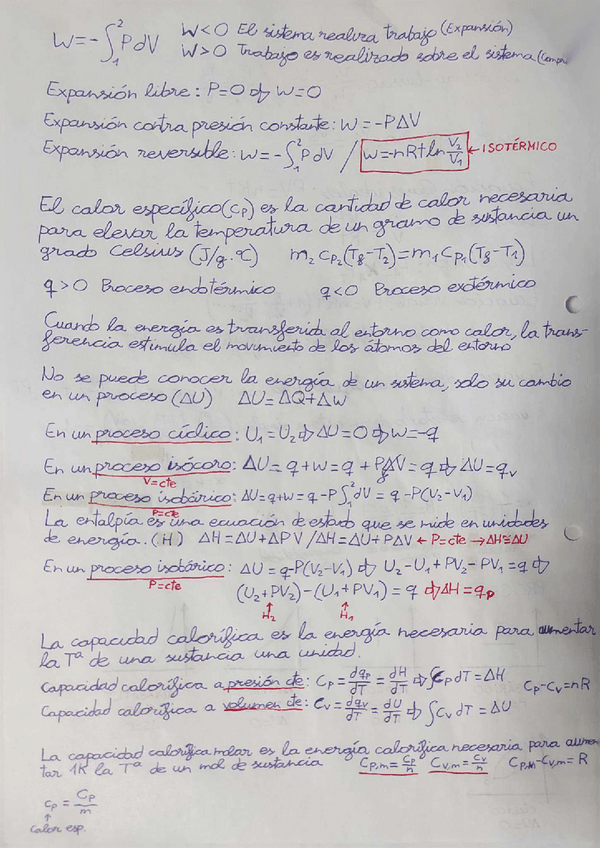 W = -∫₁² P dV   W<0 El sistema realiza trabajo (Expansión)
W>0 Trabajo es realizado sobre el sistema (Comp
Expansión libre: P=0 ⇒ W=0
Expansión contra presión constante: W = -PΔV
Expansión reversible: W = -∫₁² P dV / W=-nRT ln V₂/V₁ ← ISOTÉRMICO
El calor específico (cp) es la cantidad de calor necesaria
para elevar la temperatura de un gramo de sustancia un
grado Celsius (J/g·ºC)   m₂ cp₂ (Tf-T₂) = m₁ cp₁ (Tf-T₁)
q>0 Proceso endotérmico   q<0 Proceso exotérmico
Cuando la energía es transferida al entorno como calor, la trans-
ferencia estimula el movimiento de los átomos del entorno
No se puede conocer la energía de un sistema, solo su cambio
en un proceso (ΔU)   ΔU=ΔQ+ΔW
En un proceso cíclico: U₁=U₂ ⇒ ΔU=0 ⇒ W=-q
En un proceso isócoro: ΔU = q+w = q + PΔV = q ⇒ ΔU=qv
V=cte
En un proceso isobárico: ΔU=q+w=q-P∫₁²dV = q-P(V₂-V₁)
P=cte
La entalpía es una ecuación de estado que se mide en unidades
de energía. (H)   ΔH=ΔU+ΔPV / ΔH=ΔU+PΔV ← P=cte → ΔH≅ΔU
En un proceso isobárico: ΔU = q-P(V₂-V₁) ⇒ U₂-U₁+PV₂-PV₁=q ⇒
P=cte
(U₂+PV₂)-(U₁+PV₁) = q ⇒ ΔH=qp
↑ H₂   ↑ H₁
La capacidad calorífica es la energía necesaria para aumentar
la Tª de una sustancia una unidad.
Capacidad calorífica a presión cte: Cp = dqp/dT = dH/dT ⇒ ∫Cp dT = ΔH   Cp-Cv=nR
Capacidad calorífica a volumen cte: Cv = dqv/dT = dU/dT ⇒ ∫Cv dT = ΔU
La capacidad calorífica molar es la energía calorífica necesaria para aumen-
tar 1K la Tª de un mol de sustancia   Cp,m = Cp/n   Cv,m = Cv/n   Cp,m-Cv,m = R
cp = Cp/m
↑
Calor esp.